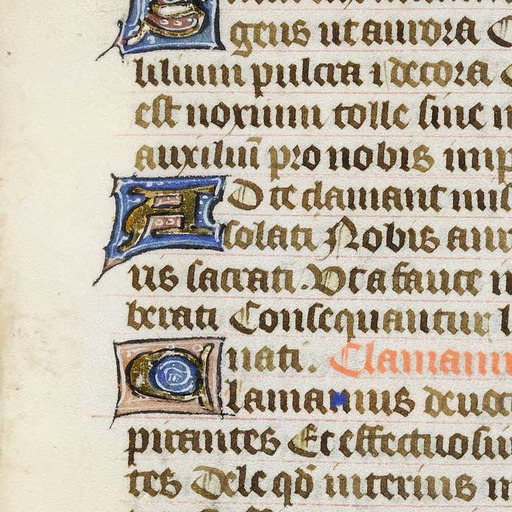 gens ut aurora
lilium pulcra i decora
est noxium tolle sine
auxiliū pro nobis
AD te clamant
solati Nobis
us sacrati. Vt a fauce
berati Consequantur
nati. Clamam
Clamamus
pirantes Et effectuo
tes Dele qd̄ interius